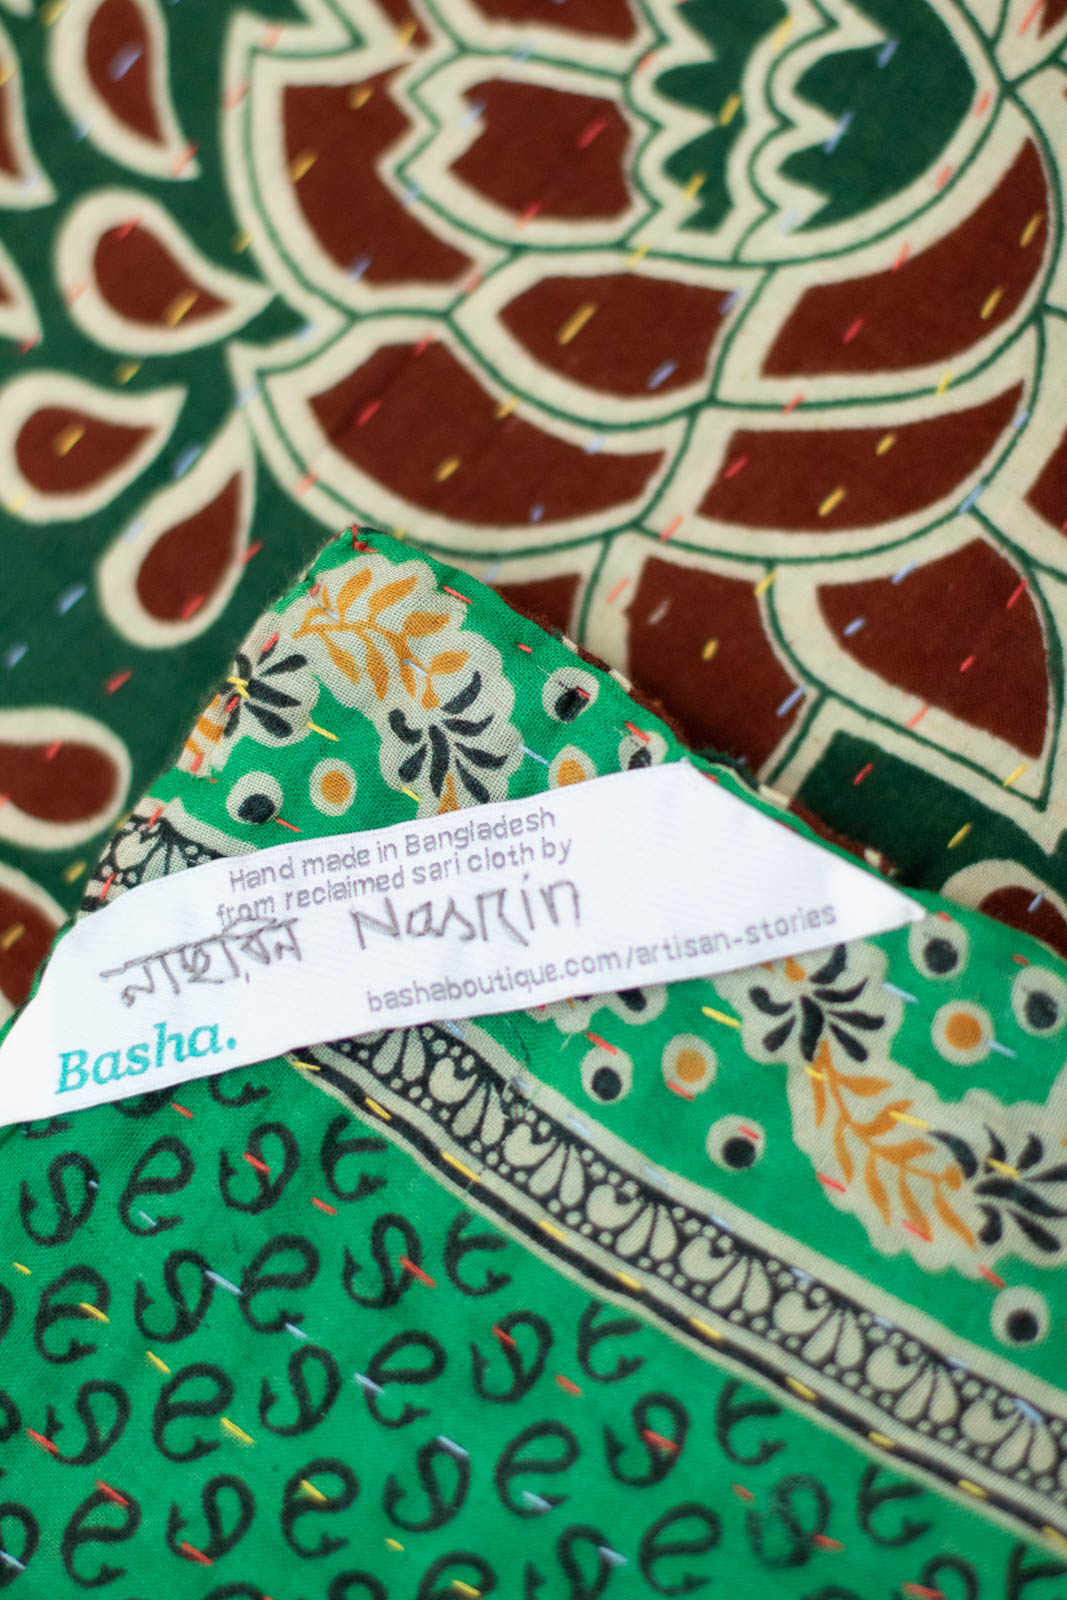 Hand made in Bangladesh
from reclaimed sari cloth by
নাছরিন Nasrin
bashaboutique.com/artisan-stories
Basha.